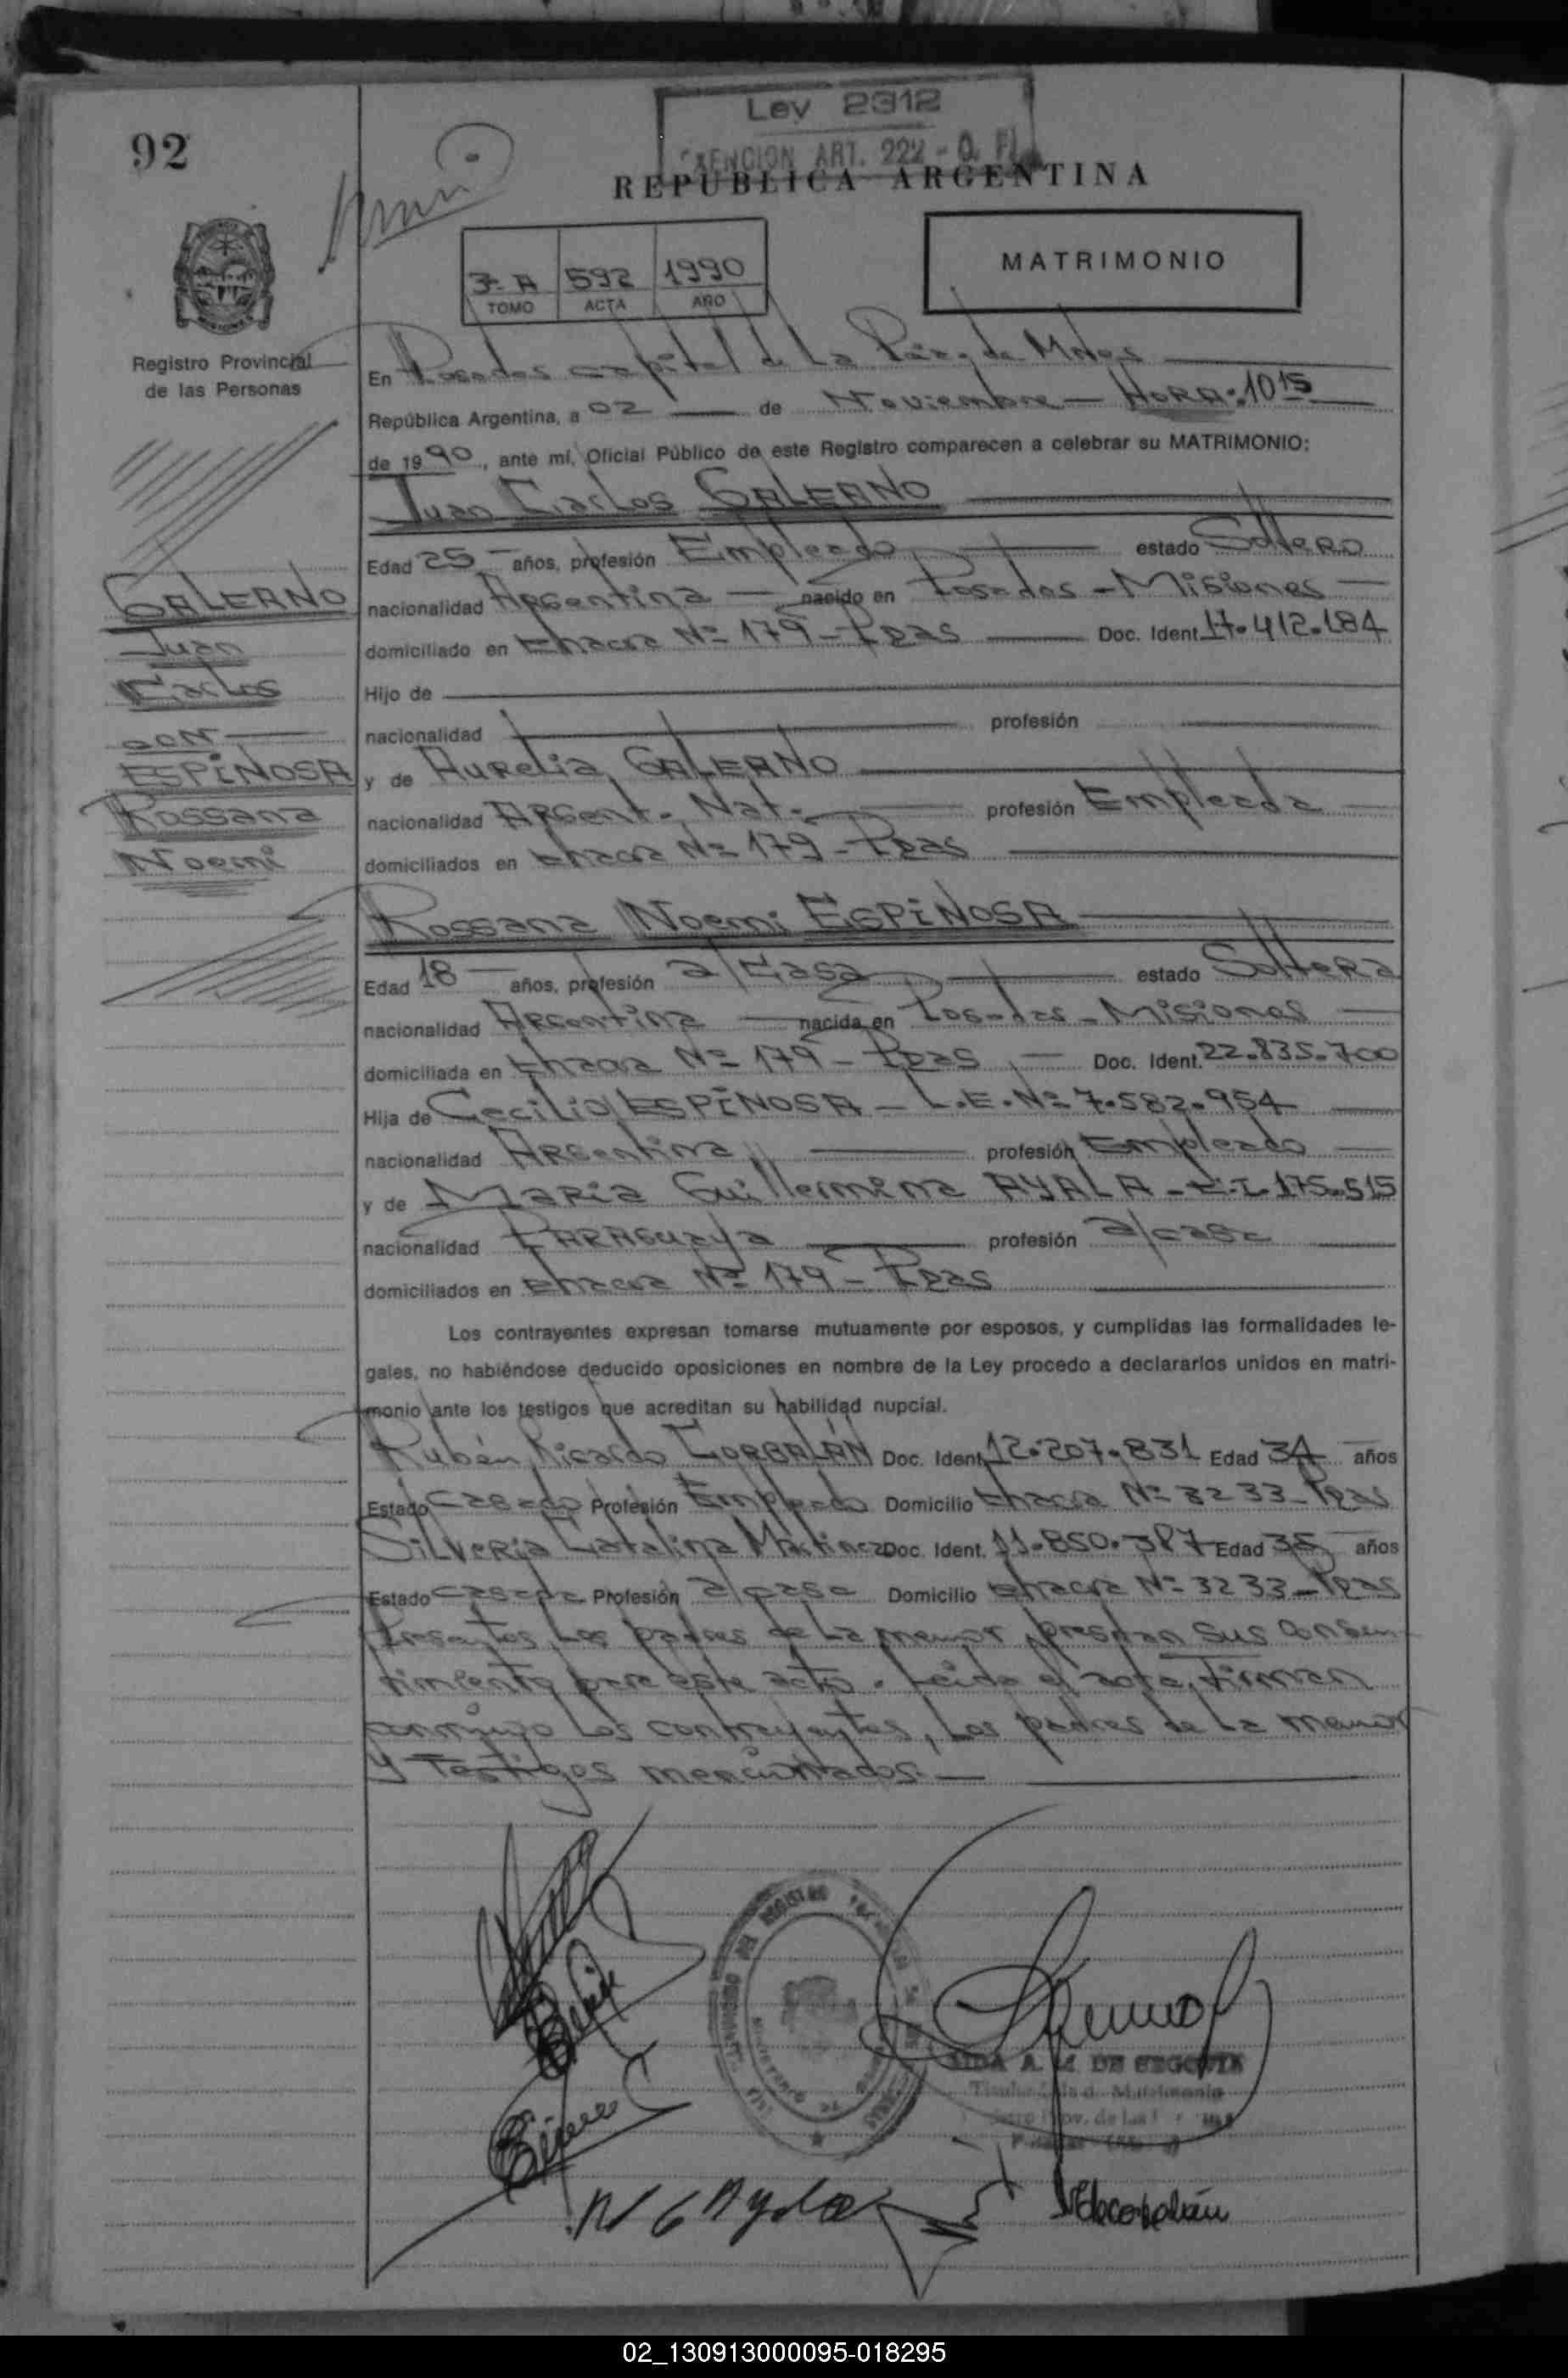 92
Ley 2312
EXENCION ART. 222 - O. F.
REPUBLICA ARGENTINA
3º A 592 1990
TOMO ACTA AÑO
MATRIMONIO
Registro Provincial
de las Personas
En Posadas capital de La Pcia. de Mnes
República Argentina, a 02 de Noviembre - HORA: 10 15
de 1990, ante mí, Oficial Público de este Registro comparecen a celebrar su MATRIMONIO:
Juan Carlos GALEANO
Edad 25 años, profesión Empleado estado Soltero
nacionalidad Argentina nacido en Posadas - Misiones
domiciliado en Chacra Nº 179 - Pdas Doc. Ident. 17.412.184
Hijo de
nacionalidad profesión
y de Aurelia GALEANO
nacionalidad Argent. Nat. profesión Empleada
domiciliados en Chacra Nº 179 - Pdas
GALEANO
Juan
Carlos
CON
ESPINOSA
Rossana
Noemi
Rossana Noemi ESPINOSA
Edad 18 años, profesión a/casa estado Soltera
nacionalidad Argentina nacida en Posadas - Misiones
domiciliada en Chacra Nº 179 - Pdas Doc. Ident. 22.835.700
Hija de Cecilio ESPINOSA - L.E. Nº 7.582.954
nacionalidad Argentina profesión Empleado
y de Maria Guillermina AYALA - C.I. 175.515
nacionalidad Paraguaya profesión a/casa
domiciliados en Chacra Nº 179 - Pdas
Los contrayentes expresan tomarse mutuamente por esposos, y cumplidas las formalidades le-
gales, no habiéndose deducido oposiciones en nombre de la Ley procedo a declararlos unidos en matri-
monio ante los testigos que acreditan su habilidad nupcial.
Rubén Ricardo CORBALÁN Doc. Ident. 12.207.831 Edad 34 años
Estado Casado Profesión Empleado Domicilio Chacra Nº 3233 - Pdas
Silveria Catalina Martinez Doc. Ident. 11.850.387 Edad 35 años
Estado casada Profesión a/casa Domicilio Chacra Nº 3233 - Pdas
Presentes Los padres de La menor, prestan sus consen-
timiento para este acto. Leida el acta, Firman
conmigo Los contrayentes, Los padres de La menor
y Testigos mencionados.
AIDA A. M. DE SEGOVIA
M G Ayala
02_130913000095-018295